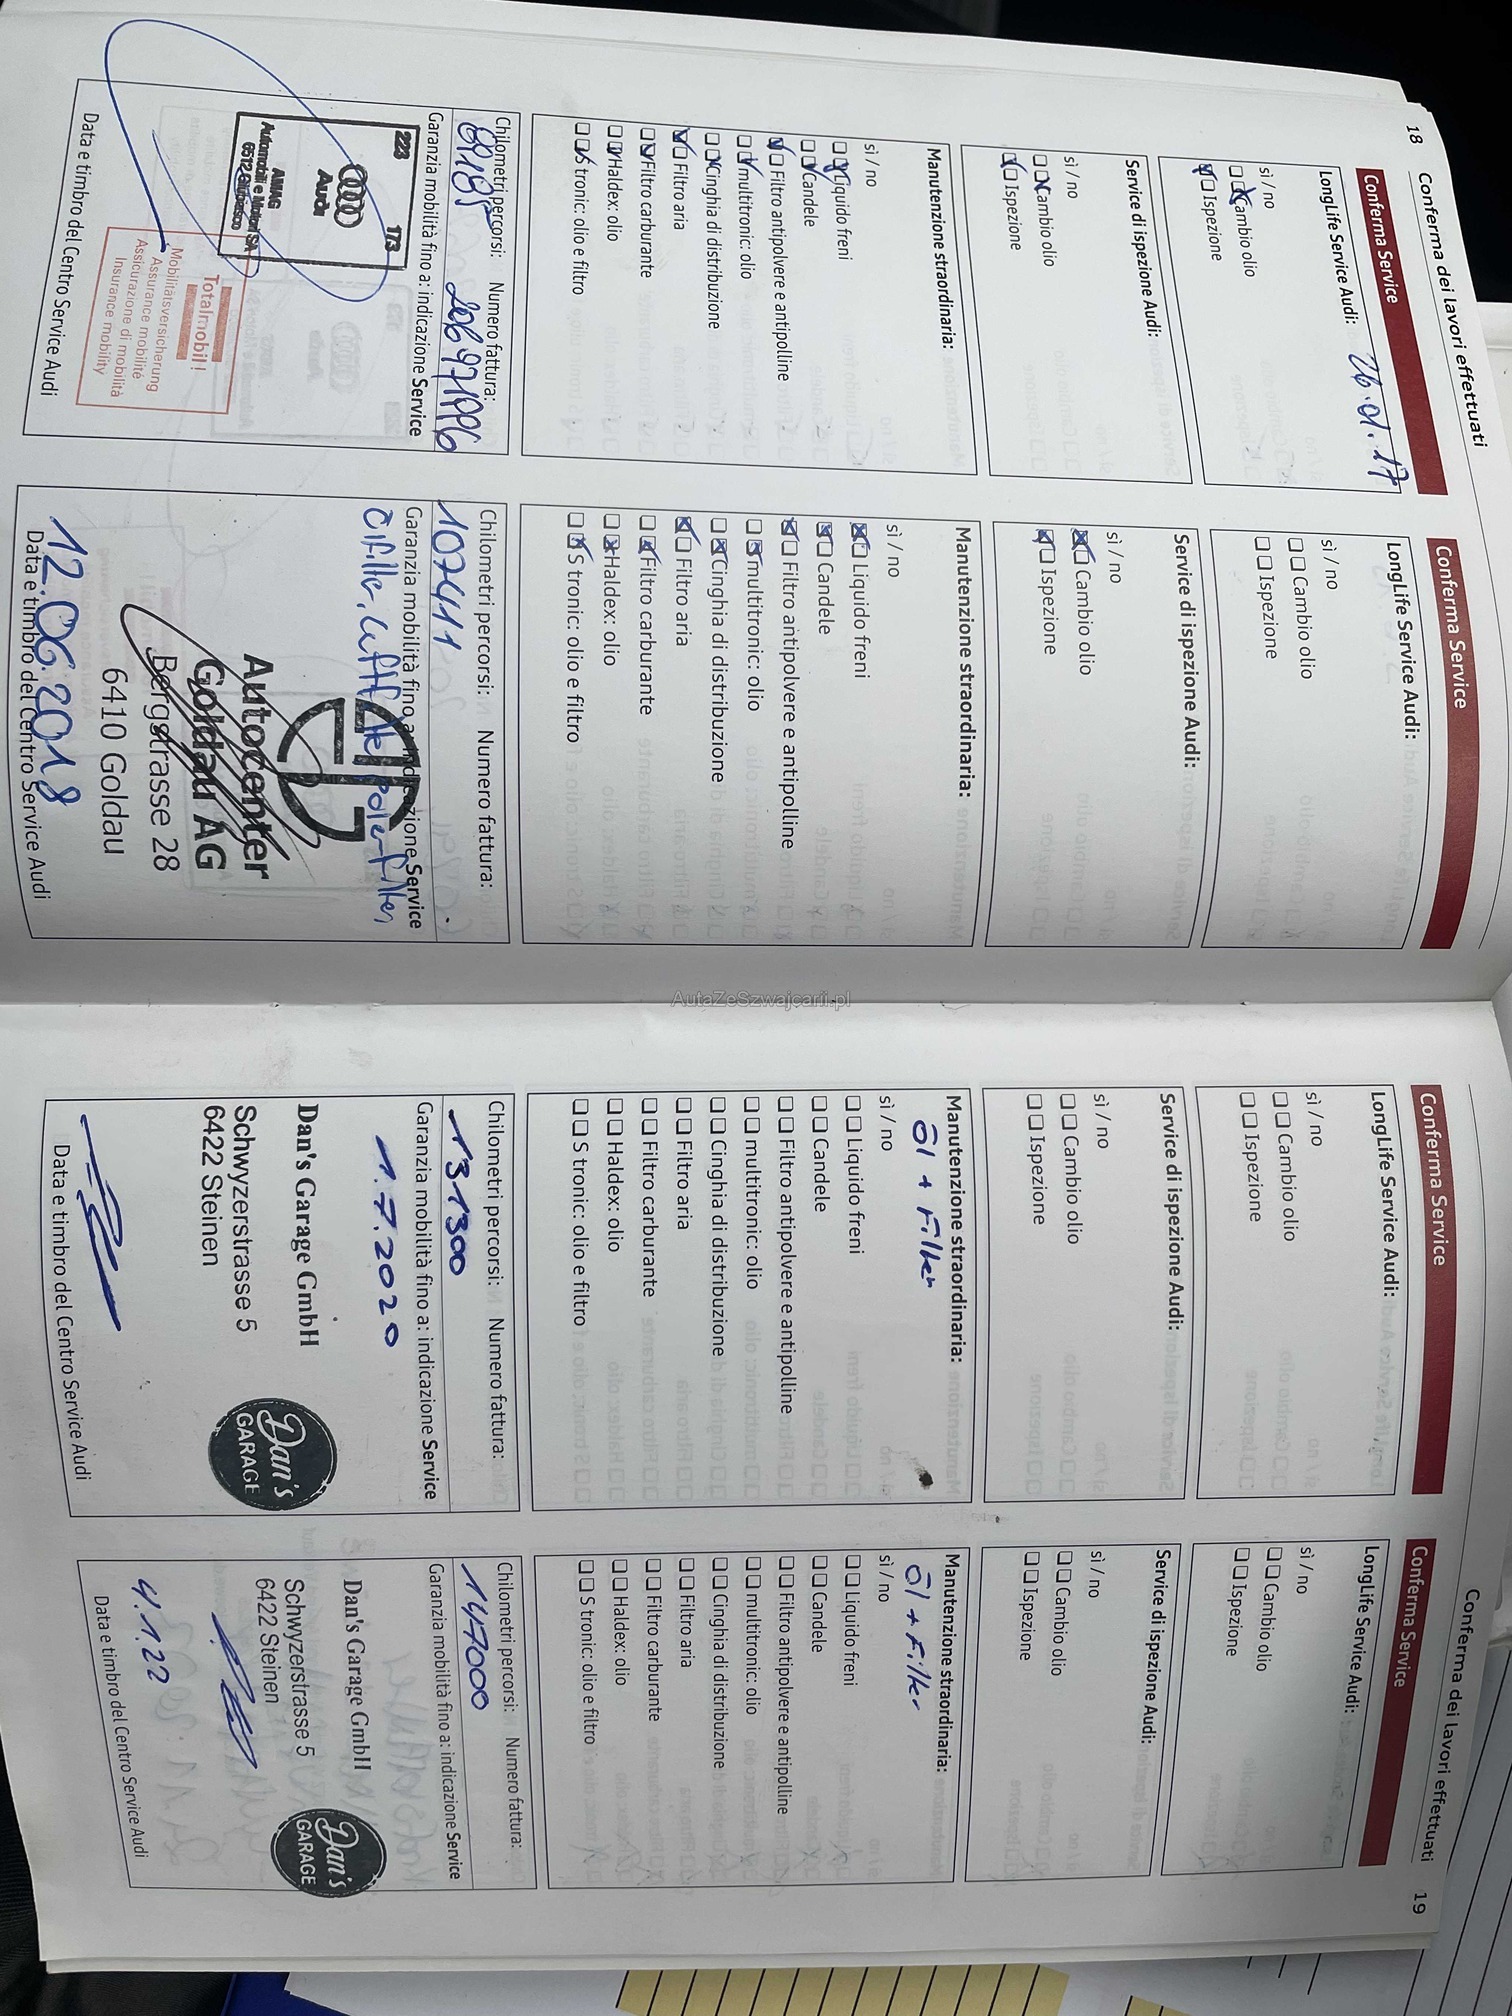 18 Conferma dei lavori effettuati
Conferma Service
LongLife Service Audi: 26.01.17
sì / no
Cambio olio
Ispezione
Service di ispezione Audi:
sì / no
Cambio olio
Ispezione
Manutenzione straordinaria:
sì / no
Liquido freni
Candele
Filtro antipolvere e antipolline
multitronic: olio
Cinghia di distribuzione
Filtro aria
Filtro carburante
Haldex: olio
S tronic: olio e filtro
Chilometri percorsi: Numero fattura:
Garanzia mobilità fino a: indicazione Service
223 173
Audi
AMAG
Automobili e Motori SA
Totalmobil!
Mobilitätsversicherung
Assurance mobilité
Assicurazione di mobilità
Insurance mobility
Data e timbro del Centro Service Audi
Conferma Service
LongLife Service Audi:
sì / no
Cambio olio
Ispezione
Service di ispezione Audi:
sì / no
Cambio olio
Ispezione
Manutenzione straordinaria:
sì / no
Liquido freni
Candele
Filtro antipolvere e antipolline
multitronic: olio
Cinghia di distribuzione
Filtro aria
Filtro carburante
Haldex: olio
S tronic: olio e filtro
Chilometri percorsi: Numero fattura:
107411
Garanzia mobilità fino a: indicazione Service
Autocenter
Goldau AG
Bergstrasse 28
6410 Goldau
12.06.2018
Data e timbro del Centro Service Audi
AutaZeSzwajcarii.pl
Conferma dei lavori effettuati 19
Conferma Service
LongLife Service Audi:
sì / no
Cambio olio
Ispezione
Service di ispezione Audi:
sì / no
Cambio olio
Ispezione
Manutenzione straordinaria:
Öl + Filter
sì / no
Liquido freni
Candele
Filtro antipolvere e antipolline
multitronic: olio
Cinghia di distribuzione
Filtro aria
Filtro carburante
Haldex: olio
S tronic: olio e filtro
Chilometri percorsi: Numero fattura:
131300
Garanzia mobilità fino a: indicazione Service
1.7.2020
Dan's Garage GmbH
Schwyzerstrasse 5
6422 Steinen
Dan's
GARAGE
Data e timbro del Centro Service Audi
Conferma Service
LongLife Service Audi:
sì / no
Cambio olio
Ispezione
Service di ispezione Audi:
sì / no
Cambio olio
Ispezione
Manutenzione straordinaria:
Öl + Filter
sì / no
Liquido freni
Candele
Filtro antipolvere e antipolline
multitronic: olio
Cinghia di distribuzione
Filtro aria
Filtro carburante
Haldex: olio
S tronic: olio e filtro
Chilometri percorsi: Numero fattura:
147000
Garanzia mobilità fino a: indicazione Service
Dan's Garage GmbH
Schwyzerstrasse 5
6422 Steinen
Dan's
GARAGE
4.1.22
Data e timbro del Centro Service Audi